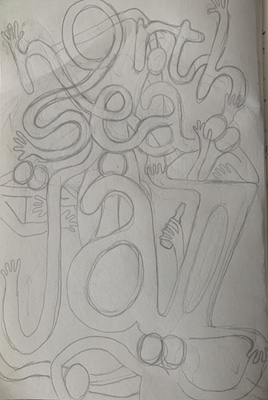 north
sea
Jazz